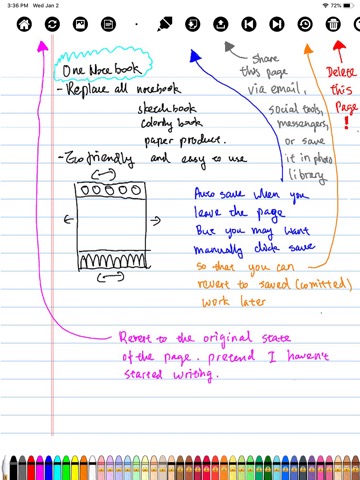 3:36 PM Wed Jan 2
72%
One Notebook
- Replace all notebook
sketchbook
coloring book
paper produce.
- Eco friendly and easy to use
Share
this page
via email,
social tools,
messengers,
or save
it in photo
library
Delete
this
Page
!
Auto save when you
leave the page
But you may want
manually click save
so that you can
revert to saved (comitted)
work later
Revert to the original state
of the page. pretend I haven't
started writing.